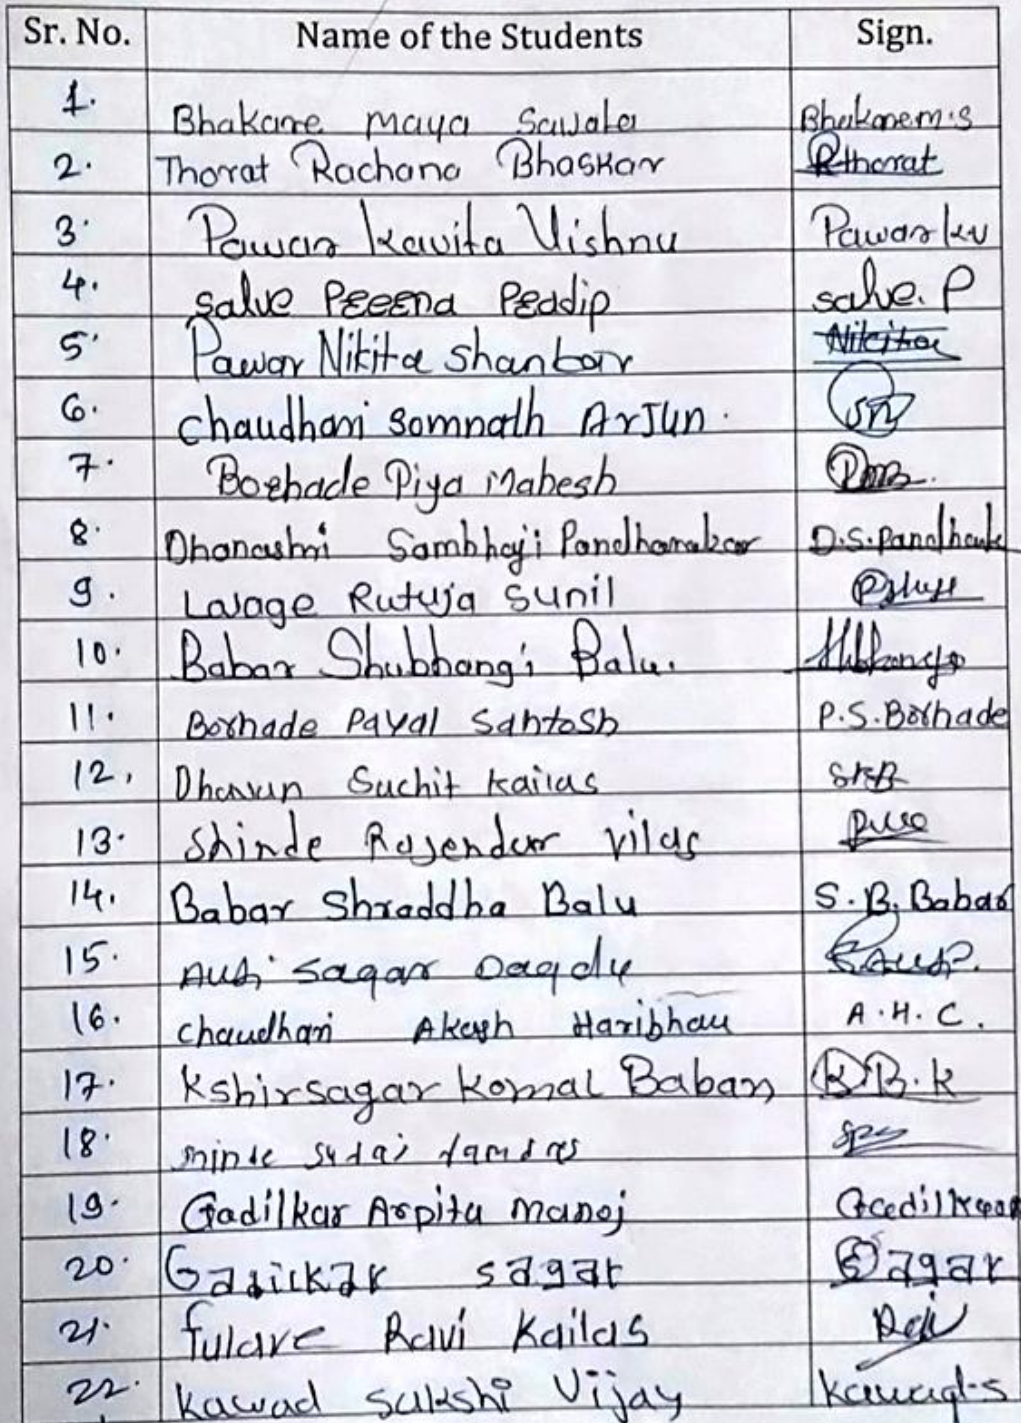 Sr. No. Name of the Students Sign.
1. Bhakare Maya Sawala Bhakarem.s
2. Thorat Rachana Bhaskar RThorat
3. Pawar Kavita Vishnu Pawar kv
4. salve Preerna Pradip salve. P
5. Pawar Nikita Shankar Nikita
6. chaudhari Somnath Arjun.
7. Borhade Piya Mahesh
8. Dhanashri Sambhaji Pandharakar D.S.Pandhark
9. Lavage Rutuja Sunil
10. Babar Shubhangi Balu.
11. Borhade Payal Santosh P.S.Borhade
12. Suchit Kailas
13. Shinde Rajendar Vilas
14. Babar Shraddha Balu S.B. Babar
15. Sagar Dagdu
16. chaudhari Akash Haribhau A.H.C.
17. Kshirsagar Komal Baban K B.K
18.
19. Gadilkar Arpita Manoj Gadilkar
20. Gadilkar sagar Sagar
21. fulare Ravi Kailas
22. Kawad Sakshi Vijay Kawad-s